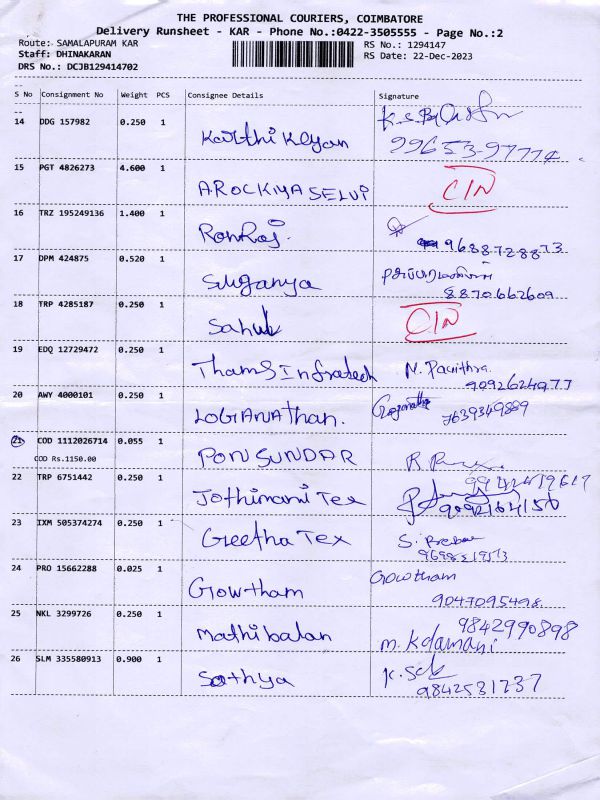 THE PROFESSIONAL COURIERS, COIMBATORE
Delivery Runsheet - KAR - Phone No.:0422-3505555 - Page No.:2
Route: SAMALAPURAM KAR
RS No.: 1294147
Staff: DHINAKARAN
RS Date: 22-Dec-2023
DRS No.: DCJB129414702
S No Consignment No Weight PCS Consignee Details Signature
14 DDG 157982 0.250 1
Karthi Kalyan
99653-97774
15 PGT 4826273 4.600 1
AROCKIYA SELVI
CIN
16 TRZ 195249136 1.400 1
RamRaj.
9688728873
17 DPM 424875 0.520 1
Suganya
8870662609
18 TRP 4285187 0.250 1
Sahul
CIN
19 EDQ 12729472 0.250 1
Thams Infratech N. Pavithra
9092624977
20 AWY 4000101 0.250 1
LOGANAthan. Loganathan 7639349869
21 COD 1112026714 0.055 1
COD Rs.1150.00
PON SUNDAR
22 TRP 6751442 0.250 1
Jothimani Tex 9092164150
23 IXM 505374274 0.250 1
Geetha Tex
24 PRO 15662288 0.025 1
Gowtham Gowtham
9047095498
25 NKL 3299726 0.250 1
Mathibalan 9842990898
26 SLM 335580913 0.900 1
Sathya
9842531737